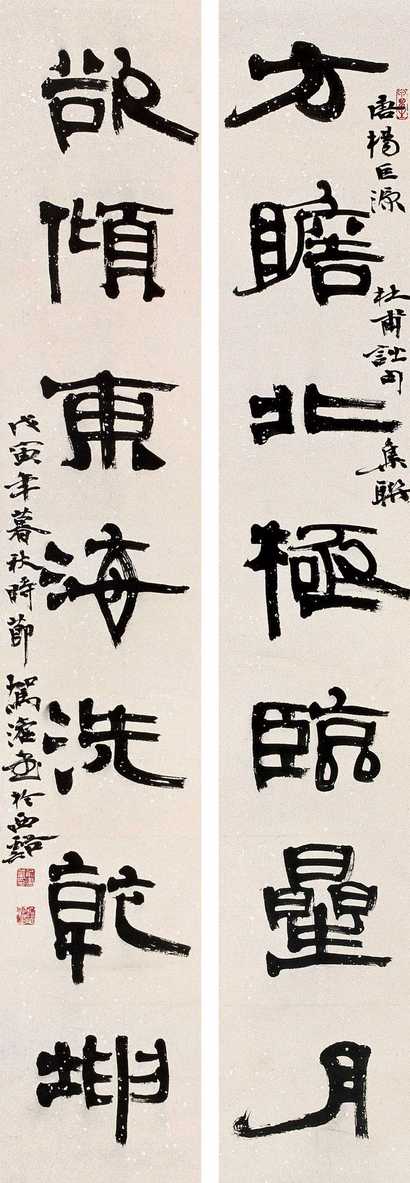 方瞻北極臨曐月
唐楊巨源 杜甫詩句 集聯
欲傾東海洗乾坤
戊寅年暮秋時節 於西谿